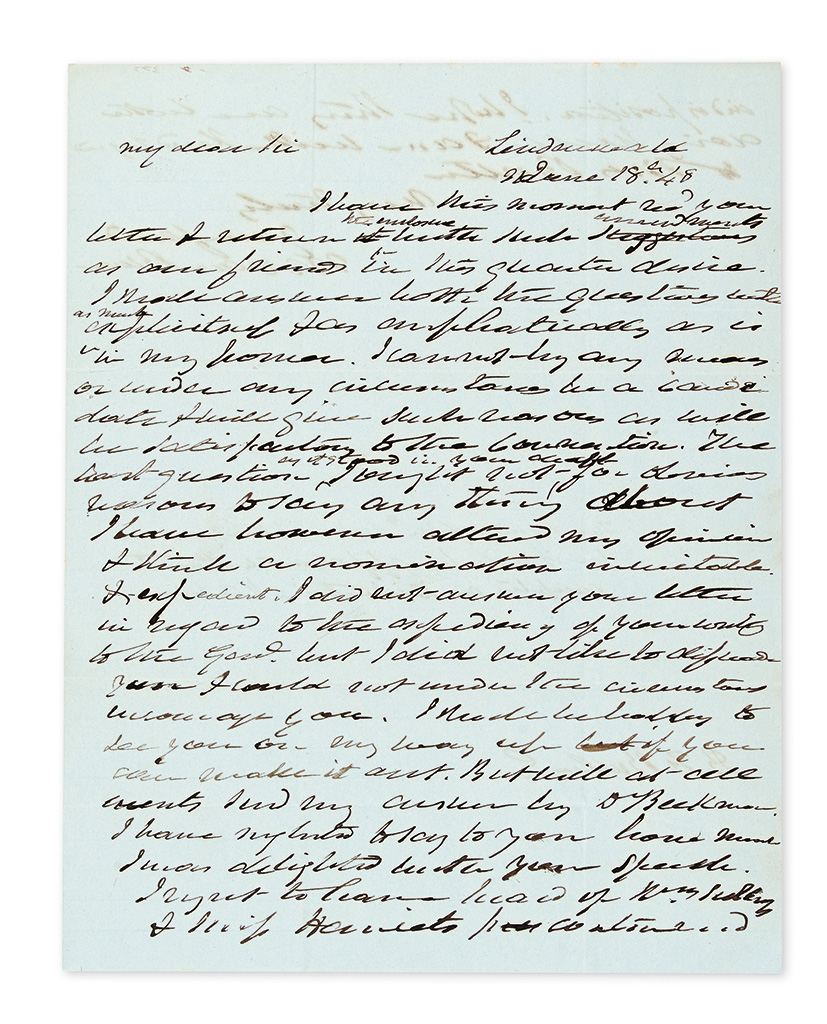 my dear Sir Lindenwald
June 18th 48
I have this moment recd your
the enclosure amendments
letter & return it with such
as our friends in this quarter desire.
I shall answer both the questions with
as much
explicitness & as emphatically as is
in my power. I cannot by any means
or under any circumstances be a candi
date & will give such reasons as will
be satisfactory to the Convention. The
as it stood in your draft
last question, I ought not, for obvious
reasons to say any thing about
I have however altered my opinion
& think a nomination inevitable
& expedient. I did not answer your letter
in regard to the expediency of your writing
to the Govr. but I did not like to dissuade
you & could not under the circumstances
encourage you. I shall be happy to
see you on my way up but if you
can make it out. But will at all
events send my answer by Dr Beekman.
I have neglected to say to you how much
I was delighted with your Speech.
I regret to have heard of Mrs
& Miss Harriets continued